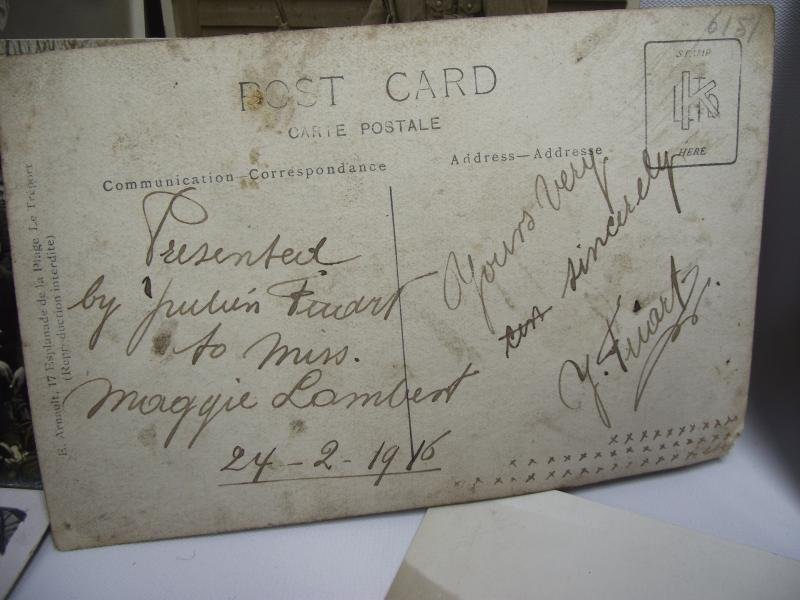 6151
POST CARD
CARTE POSTALE
STAMP
HERE
Communication—Correspondance
Address—Addresse
E. Arnault, 17 Esplanade de la Plage Le Treport
(Reproduction interdite)
Presented
by Julién Fiuart
to Miss.
Maggie Lambert
24-2-1916
Yours very
sincerely
J. Fiuart
xxxxxxxxxxxx